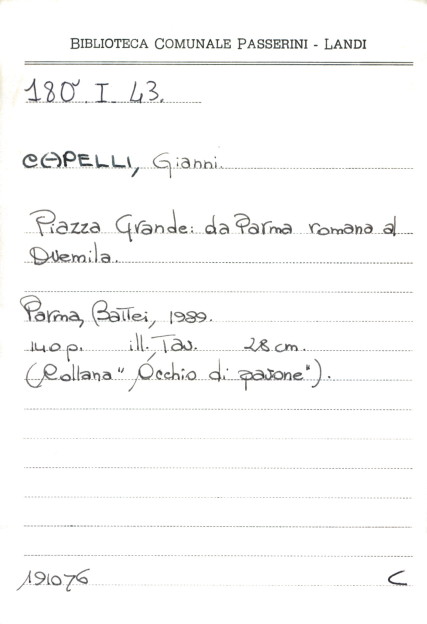 BIBLIOTECA COMUNALE PASSERINI - LANDI
180 I 43.
CAPELLI, Gianni.
Piazza Grande: da Parma romana al
Duemila.
Parma, Battei, 1989.
140 p. ill. Tav. 28 cm.
(Collana "Occhio di pavone").
191076 C